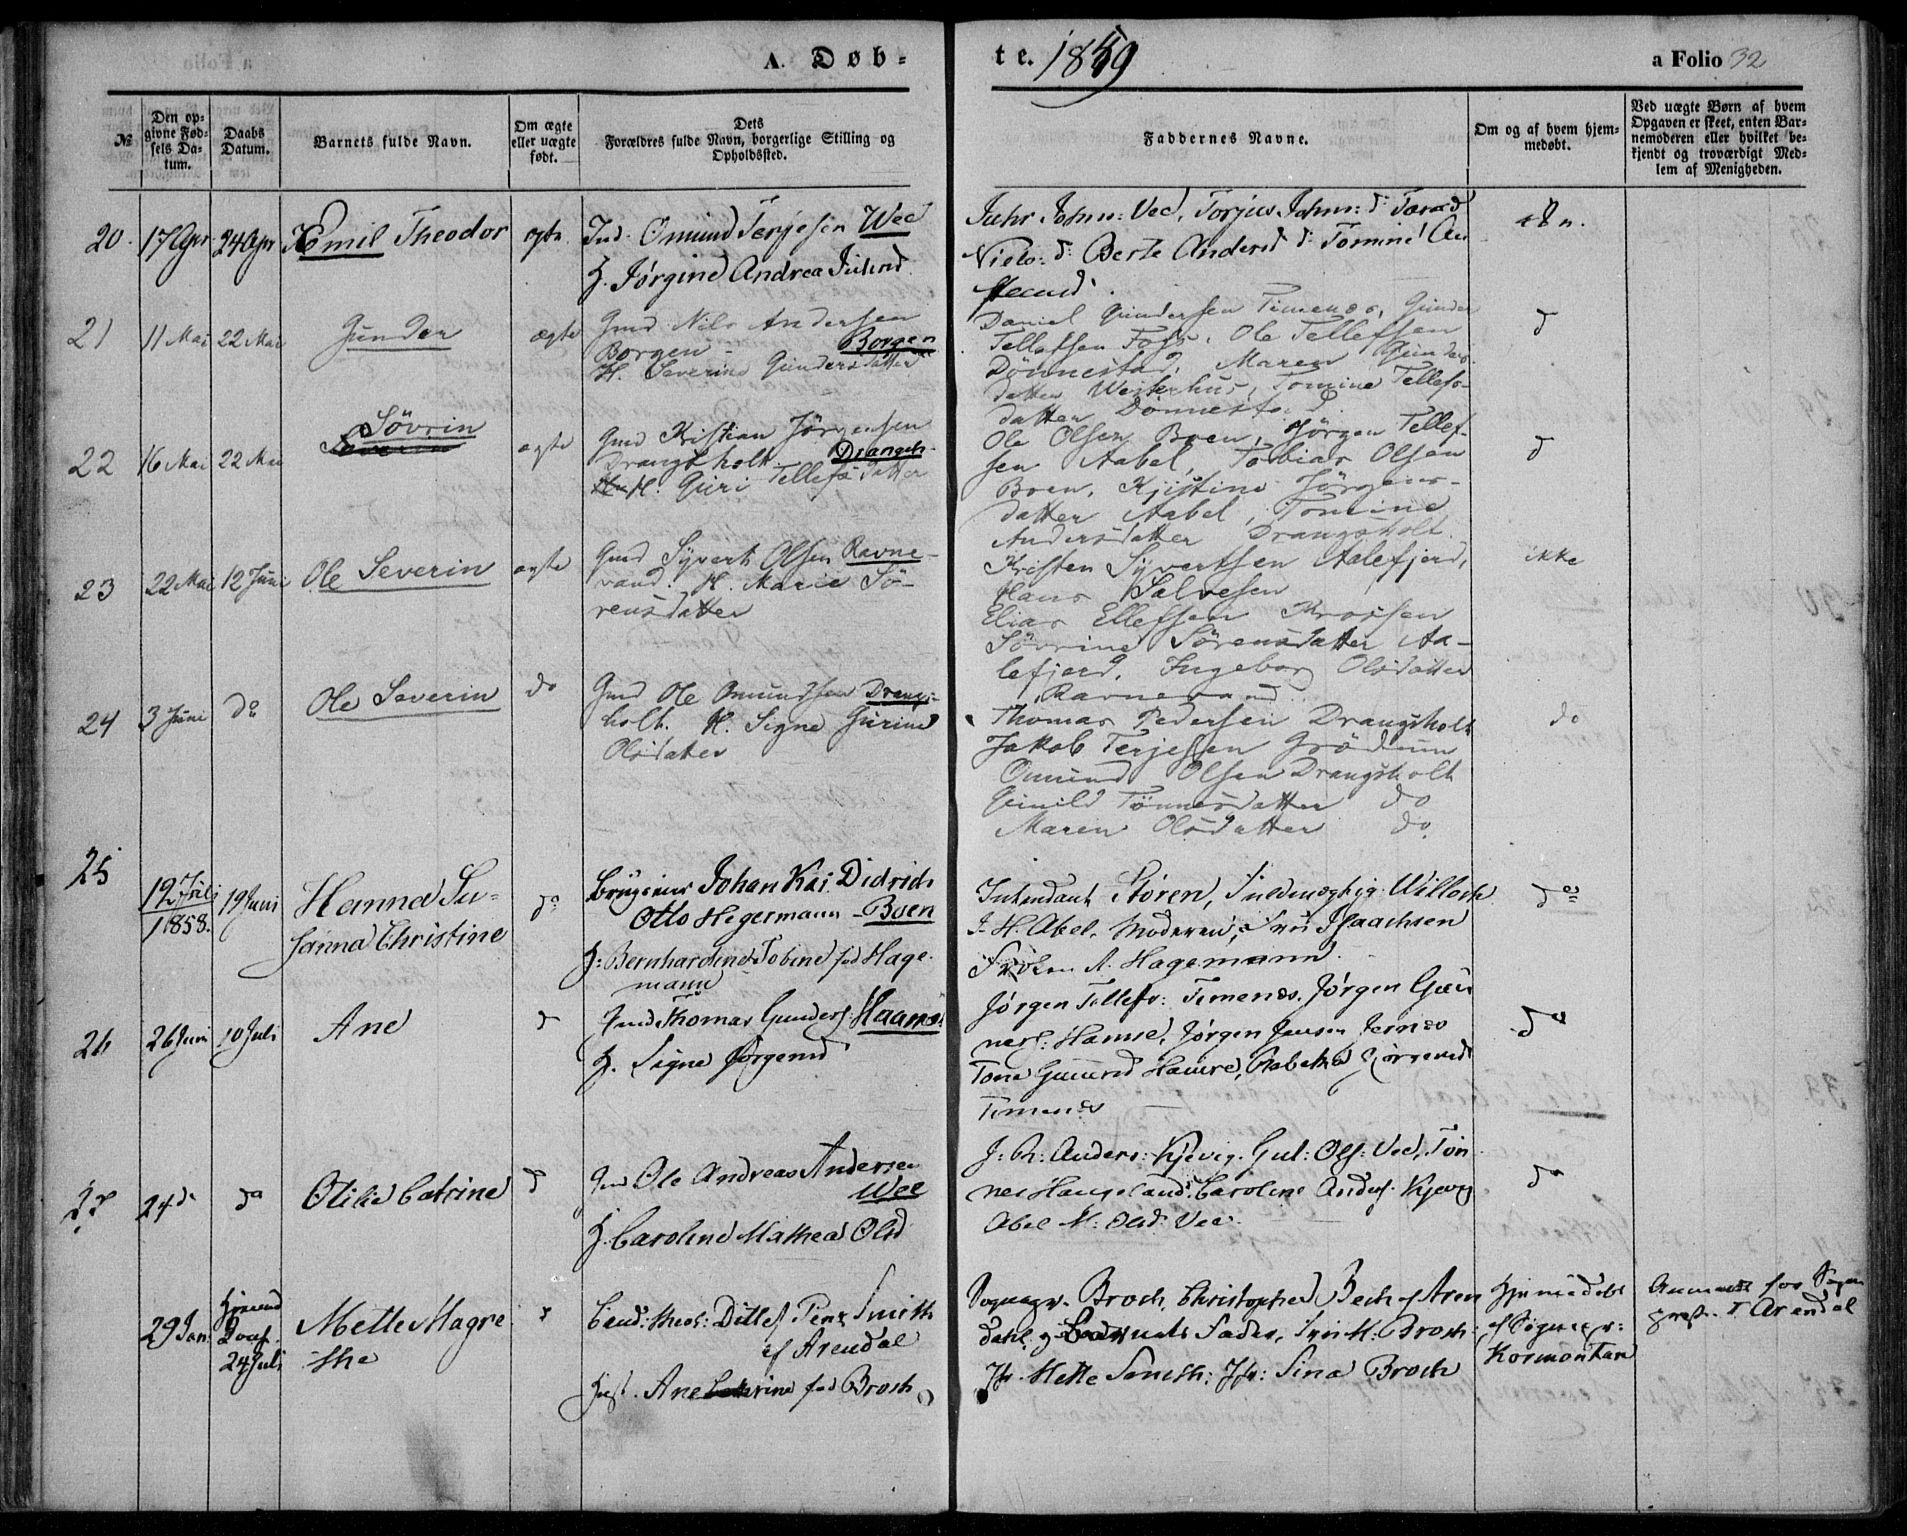 A. Døb=
te. 1859
a Folio 32
№
Den op-
givne Fød-
sels Da-
tum.
Daabs
Datum.
Barnets fulde Navn.
Om ægte
eller uægte
født.
Dets
Forældres fulde Navn, borgerlige Stilling og
Opholdssted.
Faddernes Navne.
Om og af hvem hjem-
medøbt.
Ved uægte Børn af hvem
Opgaven er skeet, enten Bar-
nemoderen eller hvilket be-
kjendt og troværdigt Med-
lem af Menigheden.
20. 17 Apr 24 Apr Emil Theodor ægte
Ind. Omund Terjesen Wee
H. Jørgine Andrea
John: Ved, Torjus John: d
Niels: d: Berte Andersd d: Tomine
21 11 Mai 22 Mai Gunder ægte
Gmd Nils Andersen
Borgen - Borgen
H. Severine Gundersdatter
Daniel Gundersen Timenæs, Gunder
Tellefsen Foss, Ole Tellefsen
Dönnestad, Maren Gunders-
datter Westerhus, Tomine Tellefs-
datter Dönnestad
d
22 16 Mai 22 Mai Sövrin ægte
Gmd Kristian Jörgensen
Drangsholt Drangsh.
H. Guri Tellefsdatter
Ole Olsen Boen, Jörgen Tellef-
sen Aabel, Tobias Olsen
Boen, Kjistine Jörgens-
datter Aabel, Tomine
Andersdatter Drangsholt.
d
23 22 Mai 12 Juni Ole Severin ægte
Gmd Syvert Olsen Ravne-
vand. H. Marie Sö-
rensdatter
Kristen Syvertsen Aalefjerd,
Hans Salvesen
Elias Ellefsen Krossen
Sövrine Sörensdatter Aa-
lefjerd, Ingebor Olsdatter
Ravnevand
ikke
24 3 Juni do Ole Severin do
Gmd Ole Omundsen Drangs-
holt. H. Signe Gurine
Olsdatter
Thomas Pedersen Drangsholt
Jakob Terjesen Grödum
Omund Olsen Drangsholt
Gunild Tönnesdatter do
Maren Olsdatter do.
do
25 12 Juli
1858. 19 Juni Hanna Su-
sanna Christine do
Brugseier Johan Kai Didrich
Otto Hegermann - Boen
H: Bernhardine Tobine fød Hage-
mann
Intendant Støren, Fuldmægtig Willoch
J. H. Abel. Moderen, Fru Isaachsen
Frøken A. Hagemann.
do
26 26 Juni 10 Juli Ane d
Gmd Thomas Gunders. Haamre
H. Signe Jørgensd
Jørgen Tellefs: Timenes, Jørgen Gun
ners: Hamre, Jørgen Jensen Jernes
Tone Gunersd Hamre, Jørgensd
Timenes
do
27 24 d. do Otilie Catrine d
Gmd Ole Andreas Andersen
Wee
H. Caroline Mathea Olsd
Anders: Kjevig. Gul: Ols: Ved, Tøn
nes Haugeland, Caroline Anders. Kjevig
Abel M: Olsd: Vee.
do
29 Jan. Hjemmed
Daaf.
24 Juli Mette Magre
the
Cand. theol: Ditlef Smith
af Arendal
Hust. Ane Catrine fød Broch
Sognepr. Broch, Christopher Bech af Aren
dahl, og Barnets Fader, Broch
Jfr. Mette Smith: Jfr: Sina Broch
Hjemmedøbt
af Sognepr:
Kormontan
Anmeldt for Sogne
præst. i Arendal